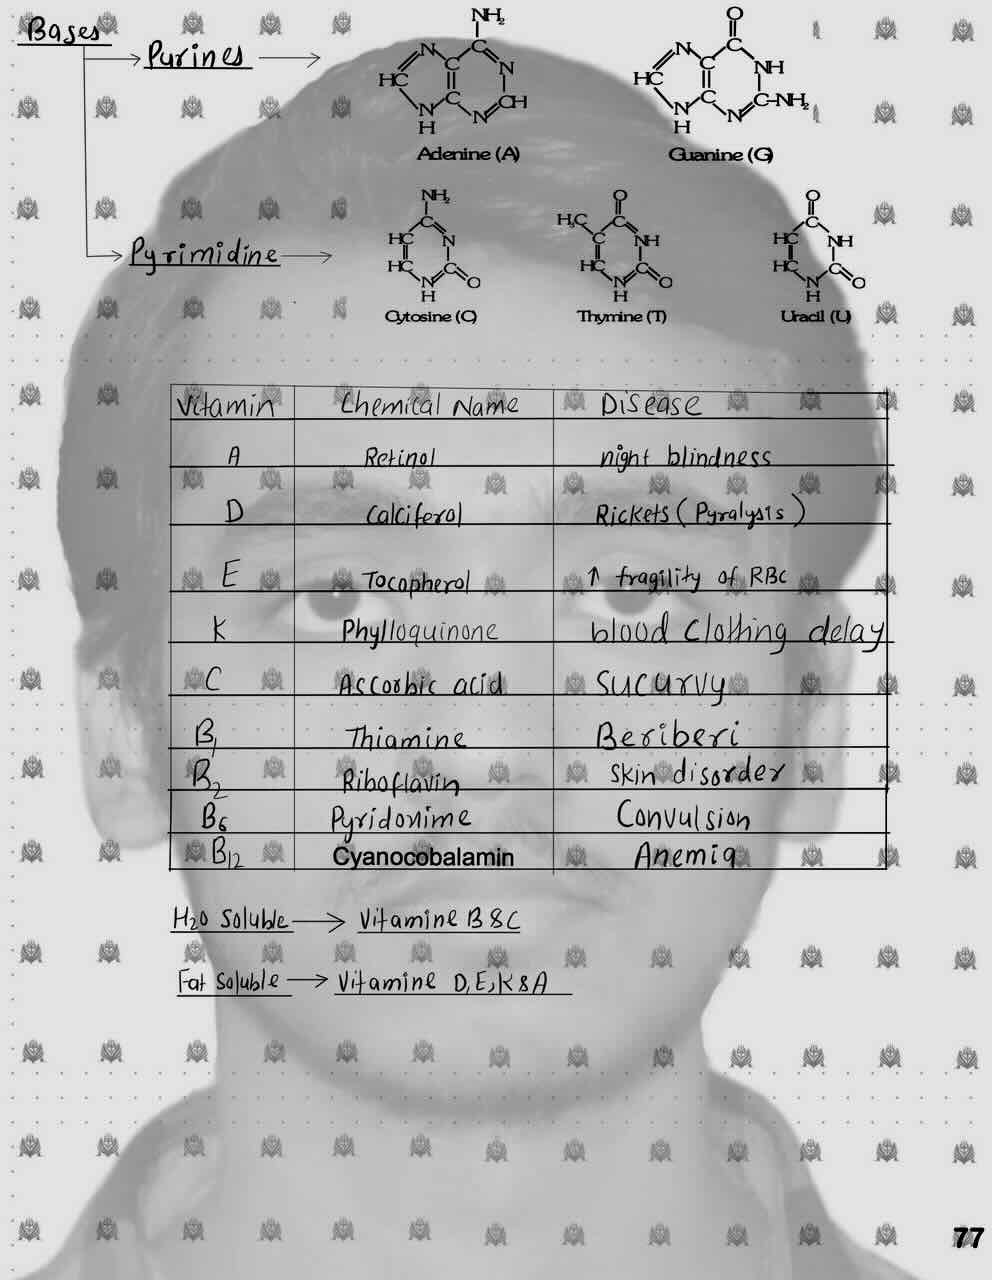 Bases
Purines
NH₂
N
C
C
N
HC
C
CH
N
N
H
Adenine (A)
O
N
C
C
NH
HC
C
C-NH₂
N
N
H
Guanine (G)
Pyrimidine
NH₂
C
HC
N
HC
C
N
O
H
Cytosine (C)
O
H₃C
C
C
NH
HC
C
N
O
H
Thymine (T)
O
C
HC
NH
HC
C
N
O
H
Uracil (U)
Vitamin Chemical Name Disease
A Retinol night blindness
D Calciferol Rickets (Pyralysis)
E Tocopherol ↑ fragility of RBC
K Phylloquinone blood Clothing delay
C Ascorbic acid Sucurvy
B₁ Thiamine Beriberi
B₂ Riboflavin Skin disorder
B₆ Pyridoxime Convulsion
B₁₂ Cyanocobalamin Anemia
H₂O Soluble → Vitamine B & C
Fat Soluble → Vitamine D, E, K & A
77